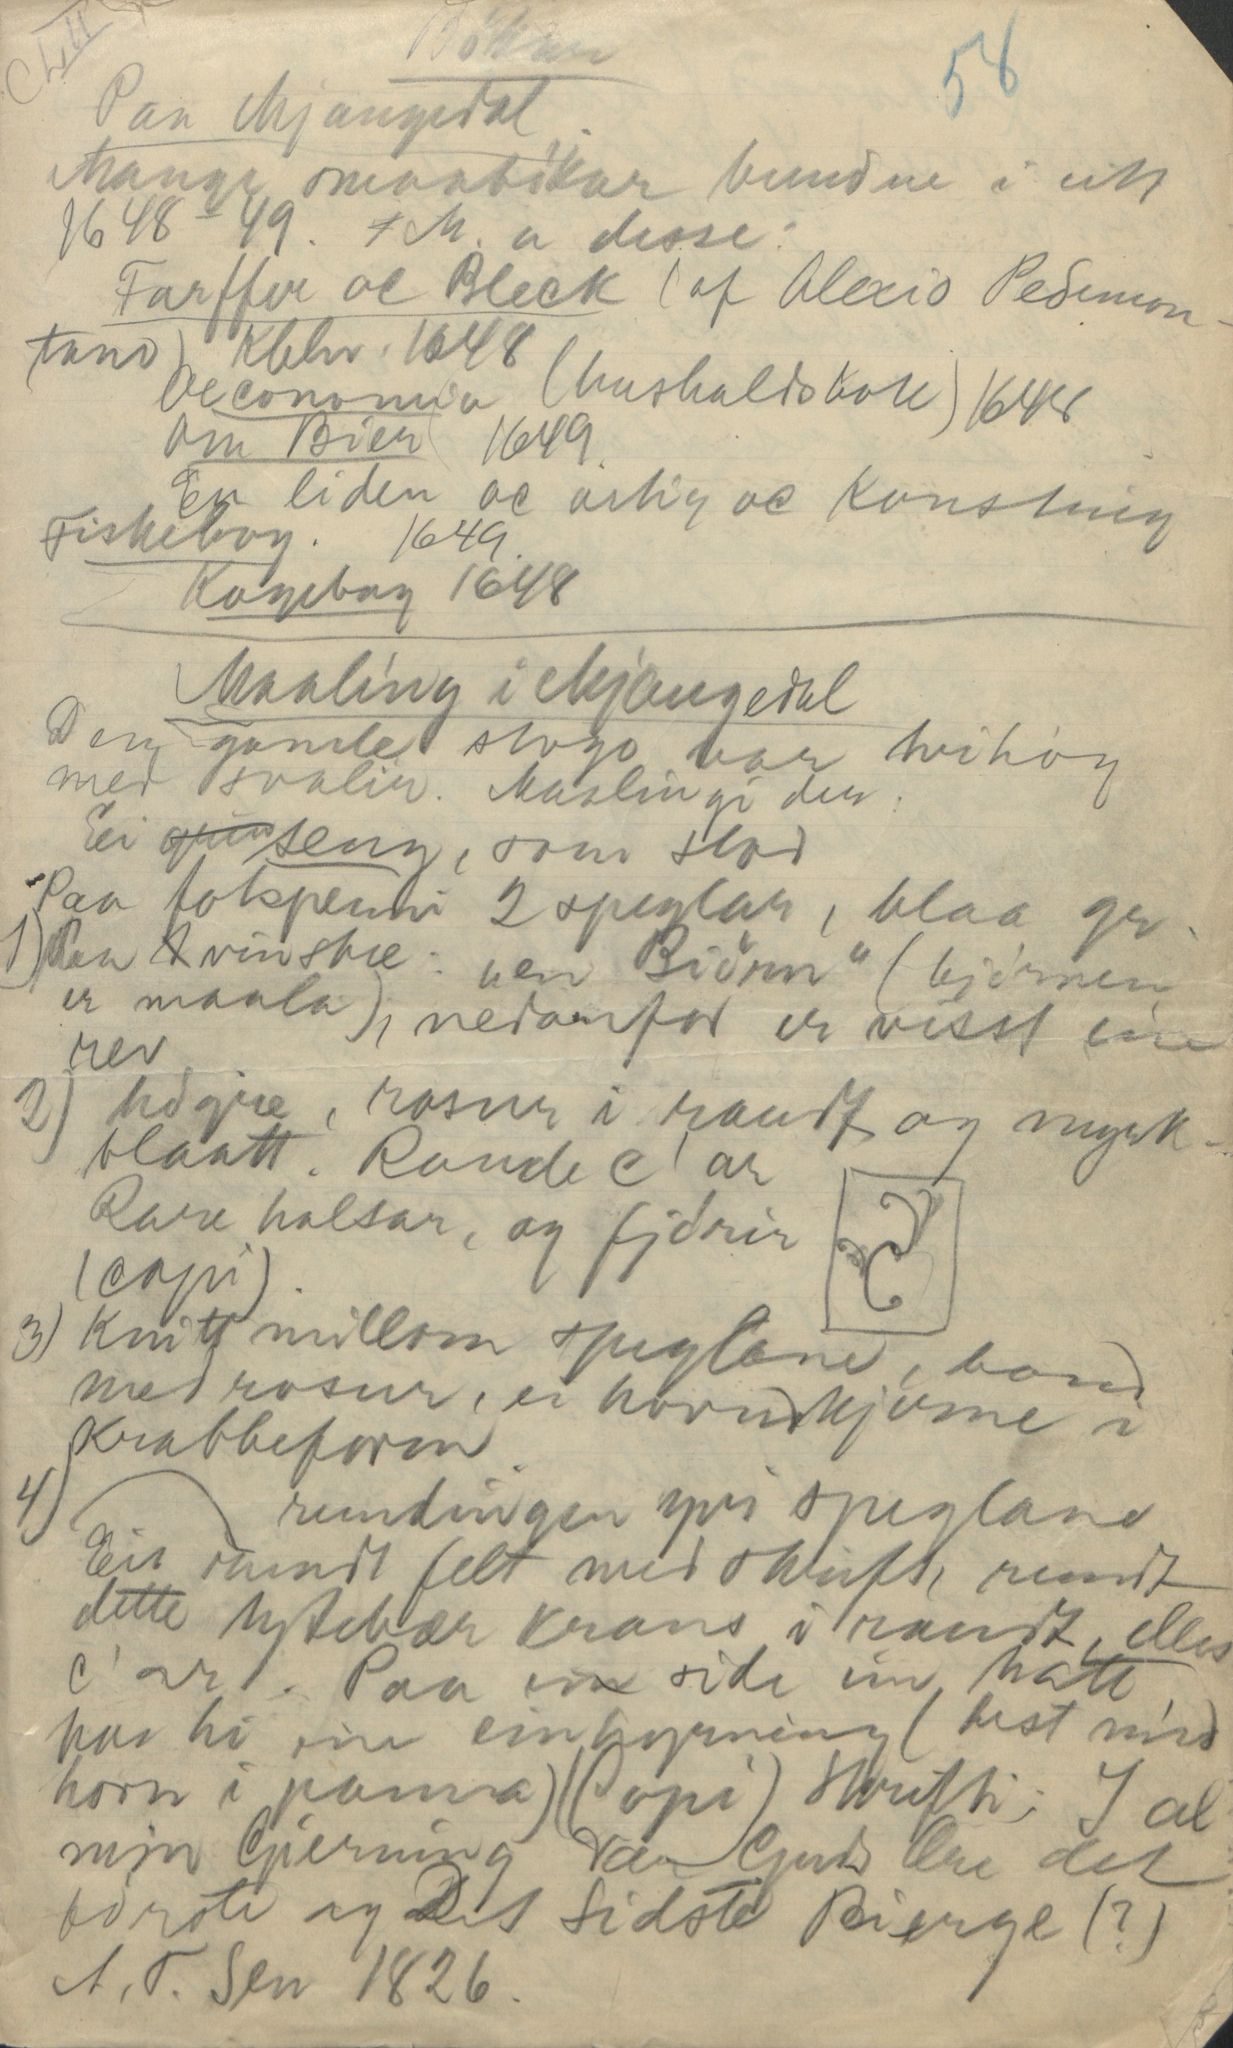 58
Bökar
Paa Mjaugedal
Mange smaabökar bundne i eitt
1648-49. M. a desse:
Farffver oc Bleck (af Alexio Pedemon-
tano) Kbhn. 1648
Oeconomia (hushaldsbok) 1648
Om Bier 1649
En liden oc artig oc Konstrig
Fiskebog. 1649.
Kogebog 1648
Maaling i Mjaugedal
Den gamle stogo var tvihög
med svalir. Maaling i der:
Ei seng, som stod
Paa fotspenni 2 speglar, blaa gr.
1) Paa vinstre: "en Biörn" (björnen
er maala), nedanfor er visst ein
rev
2) högre, rosur i raudt og myrk-
blaatt. Runde C'ar
Rare halsar, og fjörir
(copi).
3) Knitt millom speglane, band
med rosur, ei hovudkjerne i
Krabbeform
4) rundingen yvi speglane
Eit rundt felt med skrift, rundt
dette tytebær krans i raudt, elles
C'ar. Paa ei side ein hatt
paa hi ein einhyrning (hest med
horn i panna) (Copi) Skrifti: I al
min Gierning Vær Guds Ære det
förste og Det Sidste Bierge (?)
A. T. Sen 1826.